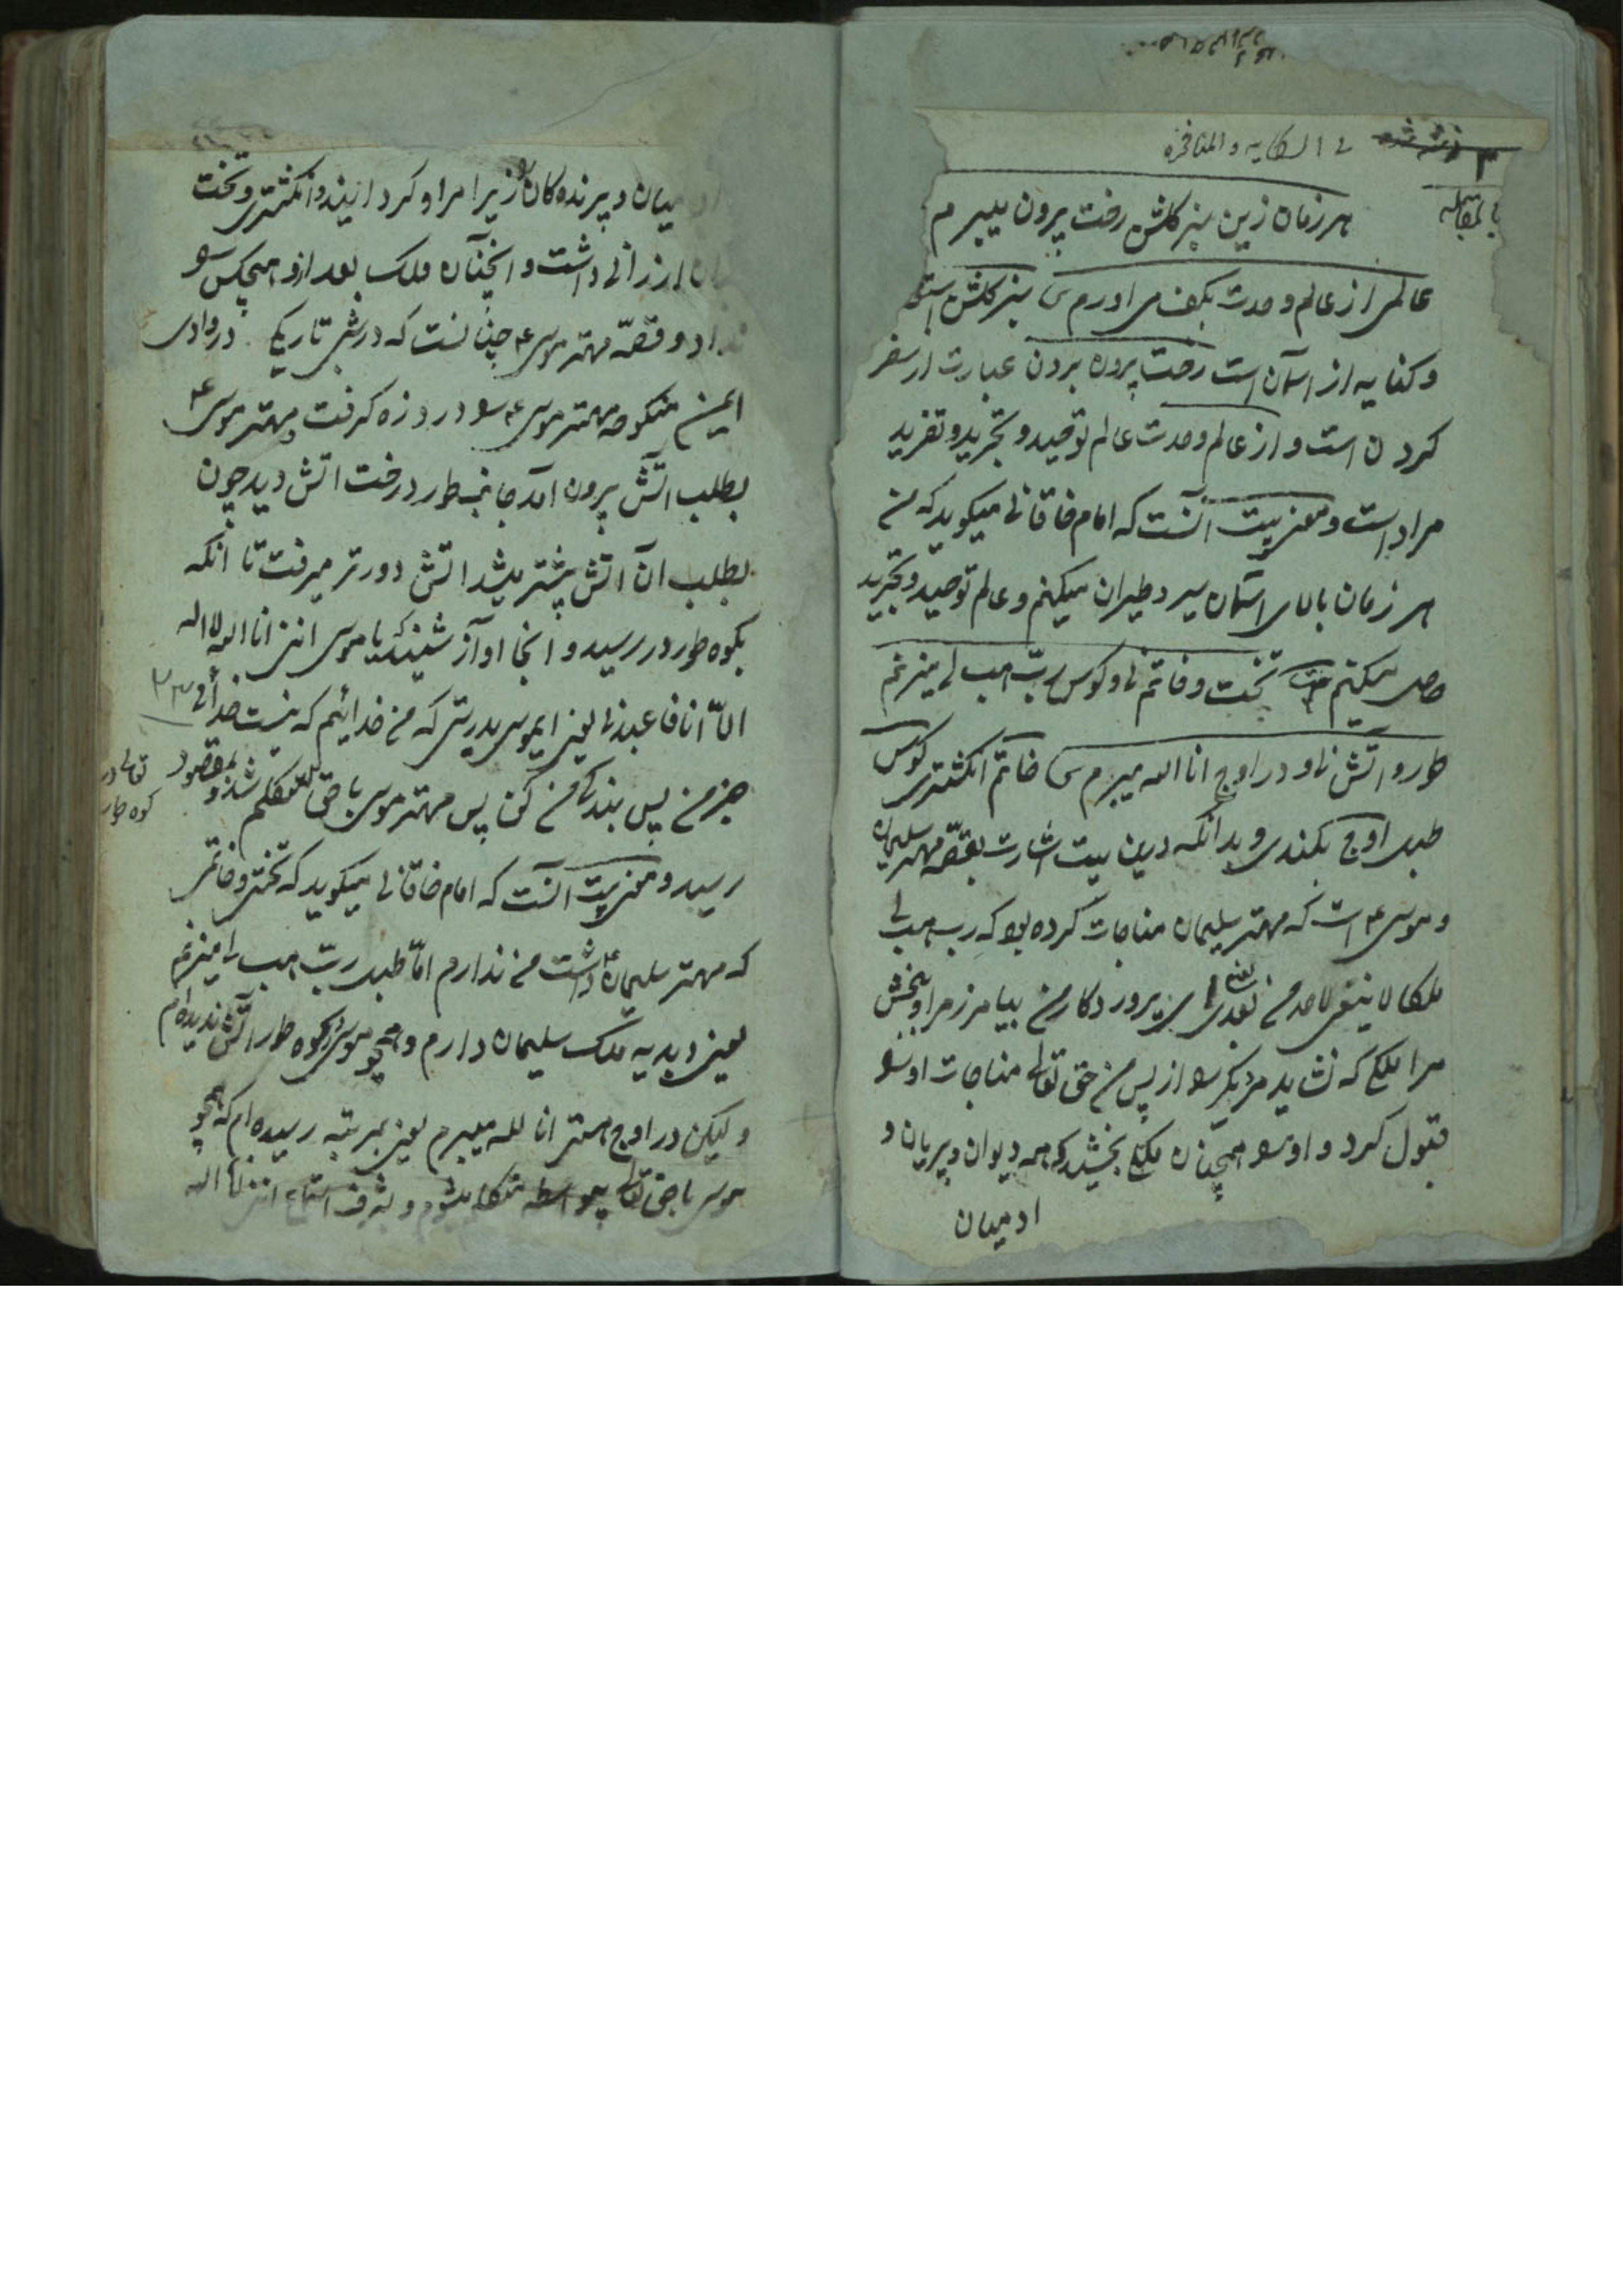 في الشكاية و المفاخرة
هر زمان زین سبز کلشن رخت بیرون میبرم
عالمی از عالم وحدت بکف می اورم ش سبز کلشن استعا
و کنایه از اسمان است رخت بیرون بردن عبارت از سفر
کردن است و از عالم وحدت عالم توحید و تجرید و تفرید
مراد است و معنی بیت آنست که امام خاقانی میکوید که من
هر زمان بالای آسمان سیر و طیران میکنم و عالم توحید و تجرید
حاصل میکنم تخت و خاتم نی و کوس رب هب لی میزنم
طور و آتش نی و در اوج انا الله میبرم ش خاتم انکشتری کوس
طبل اوج بلندی و بدانکه درین بیت اشارت بقصّه مهتر سلیمان
و موسی ع است که مهتر سلیمان مناجات کرده بود که رب هب لی
ملکا لا ینبغی لاحد من بعدی یعنی ای پروردکار من بیامرز مرا و ببخش
مرا ملکی که نشاید مر دیکری را از پس من حق تعالی مناجات او را
قبول کرد و او را همچنان ملکی بخشید که همه دیوان و پریان و
ادمیان
ادمیان و پرنده کان را زیر امر او کردانید و انکشتری و تخت
ارزانی داشت و انچنان ملک بعد ازو هیچکس را
نداد و قصّه مهتر موسی ع چنانست که در شب تاریکی در وادی
ایمن منکوحه مهتر موسی ع را درد زه کرفت مهتر موسی ع
بطلب آتش بیرون آمد جانب طور درخت اتش دید چون
بطلب آن اتش پیشتر میشد اتش دورتر میرفت تا انکه
بکوه طور در رسید و انجا اواز شنید که یا موسی اننی انا الله لا اله
الاّ انا فاعبدنی یعنی ایموسی بدرستی که من خدایم که نیست خدائی
جز من پس بندکی من کن پس مهتر موسی با حق متکلم شد و بمقصود
تعالی در
کوه طور
رسید و معنی بیت آنست که امام خاقانی میکوید که تختی و خاتمی
که مهتر سلیمان ع داشت من ندارم امّا طبل ربّ هب لی میزنم
یعنی دبدبه ملک سلیمان دارم و همچو موسی بکوه طور آتش ندیده ام
و لیکن در اوج انا الله میبرم یعنی بمرتبه رسیده ام که همچو
موسی با حق تعالی بیواسطه متکلم میشوم و بشرف استماع اننی انا الله